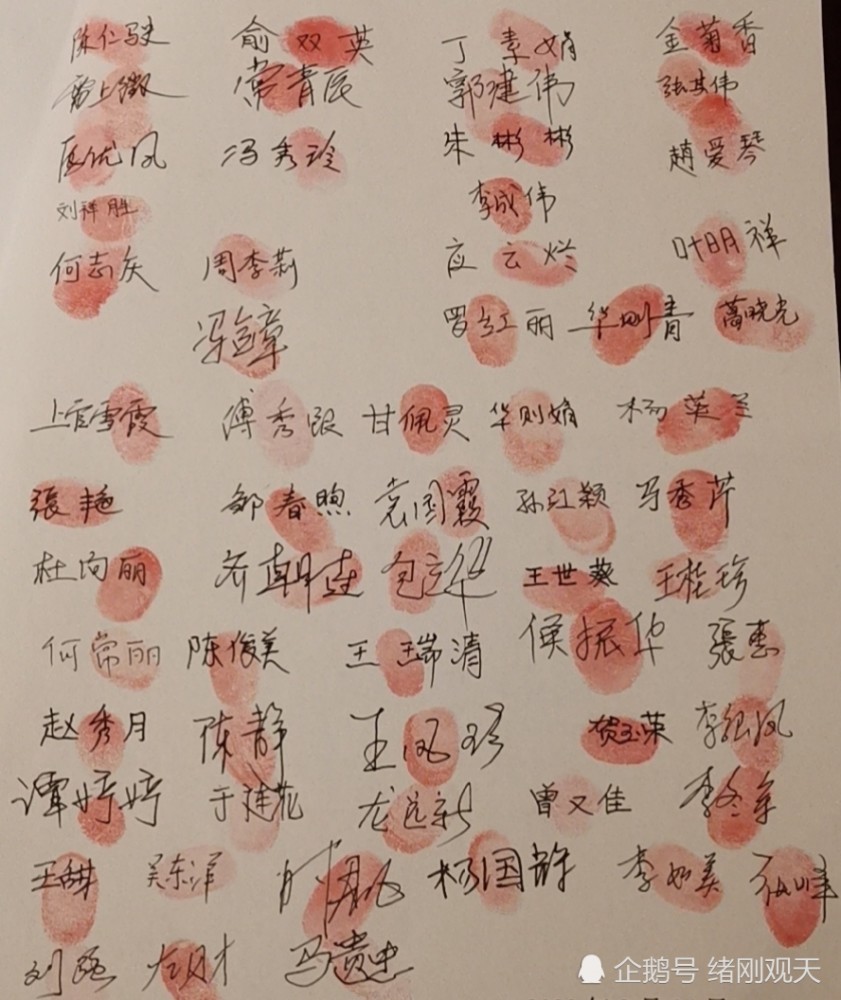 陈仁骏 俞双英 丁素娟 金菊香
常青辰 郭建伟 张其伟
冯秀玲 朱彬彬 趙爱琴
刘祥胜 李成伟
何志庆 周李莉 应云烂 叶明祥
罗红丽 华刚青 葛晓光
上官雪霞 傅秀 甘佩灵 华则娟 杨英兰
張艳 邹春煦 袁国霞 孙红颖 马秀芹
杜向丽 齐朝连 包立华 王世葵 王桂珍
何常丽 陈俊美 王瑞清 侯振华 張惠
赵秀月 陈静 王凤珍 贺玉荣 李银凤
谭婷婷 于莲花 龙远新 曾又佳 李冬军
王甜 吴东洋 杨国辉 李如美
刘磊 左月才 马贵忠
企鹅号 绪刚观天